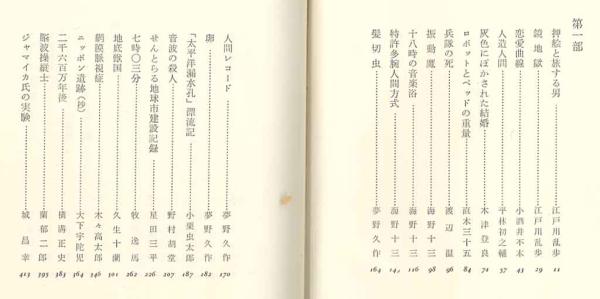 第一部
押絵と旅する男 江戸川乱歩 11
鏡地獄 江戸川乱歩 29
恋愛曲線 小酒井不木 43
人造人間 平林初之輔 57
灰色にぼかされた結婚 木津登良 71
ロボットとベッドの重量 直木三十五 84
兵隊の死 渡辺温 96
振動魔 海野十三 98
十八時の音楽浴 海野十三 116
特許多腕人間方式 海野十三
髪切虫 夢野久作 164
人間レコード 夢野久作 170
卵 夢野久作 182
「太平洋漏水孔」漂流記 小栗虫太郎 187
音波の殺人 野村胡堂 207
せんとらる地球市建設記録 星田三平 226
七時〇三分 牧逸馬 262
地底獣国 久生十蘭 301
網膜脈視症 木々高太郎 346
ニッポン遺跡(抄) 大下宇陀児 364
二千六百万年後 横溝正史 383
脳波操縦士 蘭郁二郎 395
ジャマイカ氏の実験 城昌幸 413